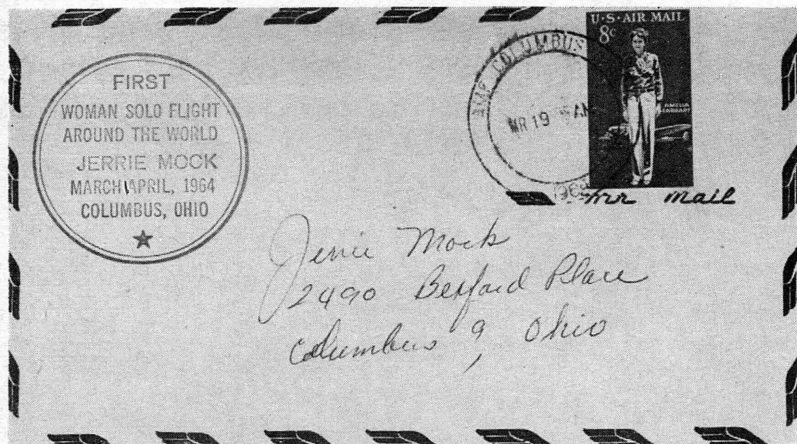 FIRST
WOMAN SOLO FLIGHT
AROUND THE WORLD
JERRIE MOCK
MARCH APRIL, 1964
COLUMBUS, OHIO
AMF COLUMBUS
MR 19 AM
196
U·S·AIR MAIL
8c
AMELIA
EARHART
Air Mail
Jerrie Mock
2490 Bexford Place
Columbus 9, Ohio